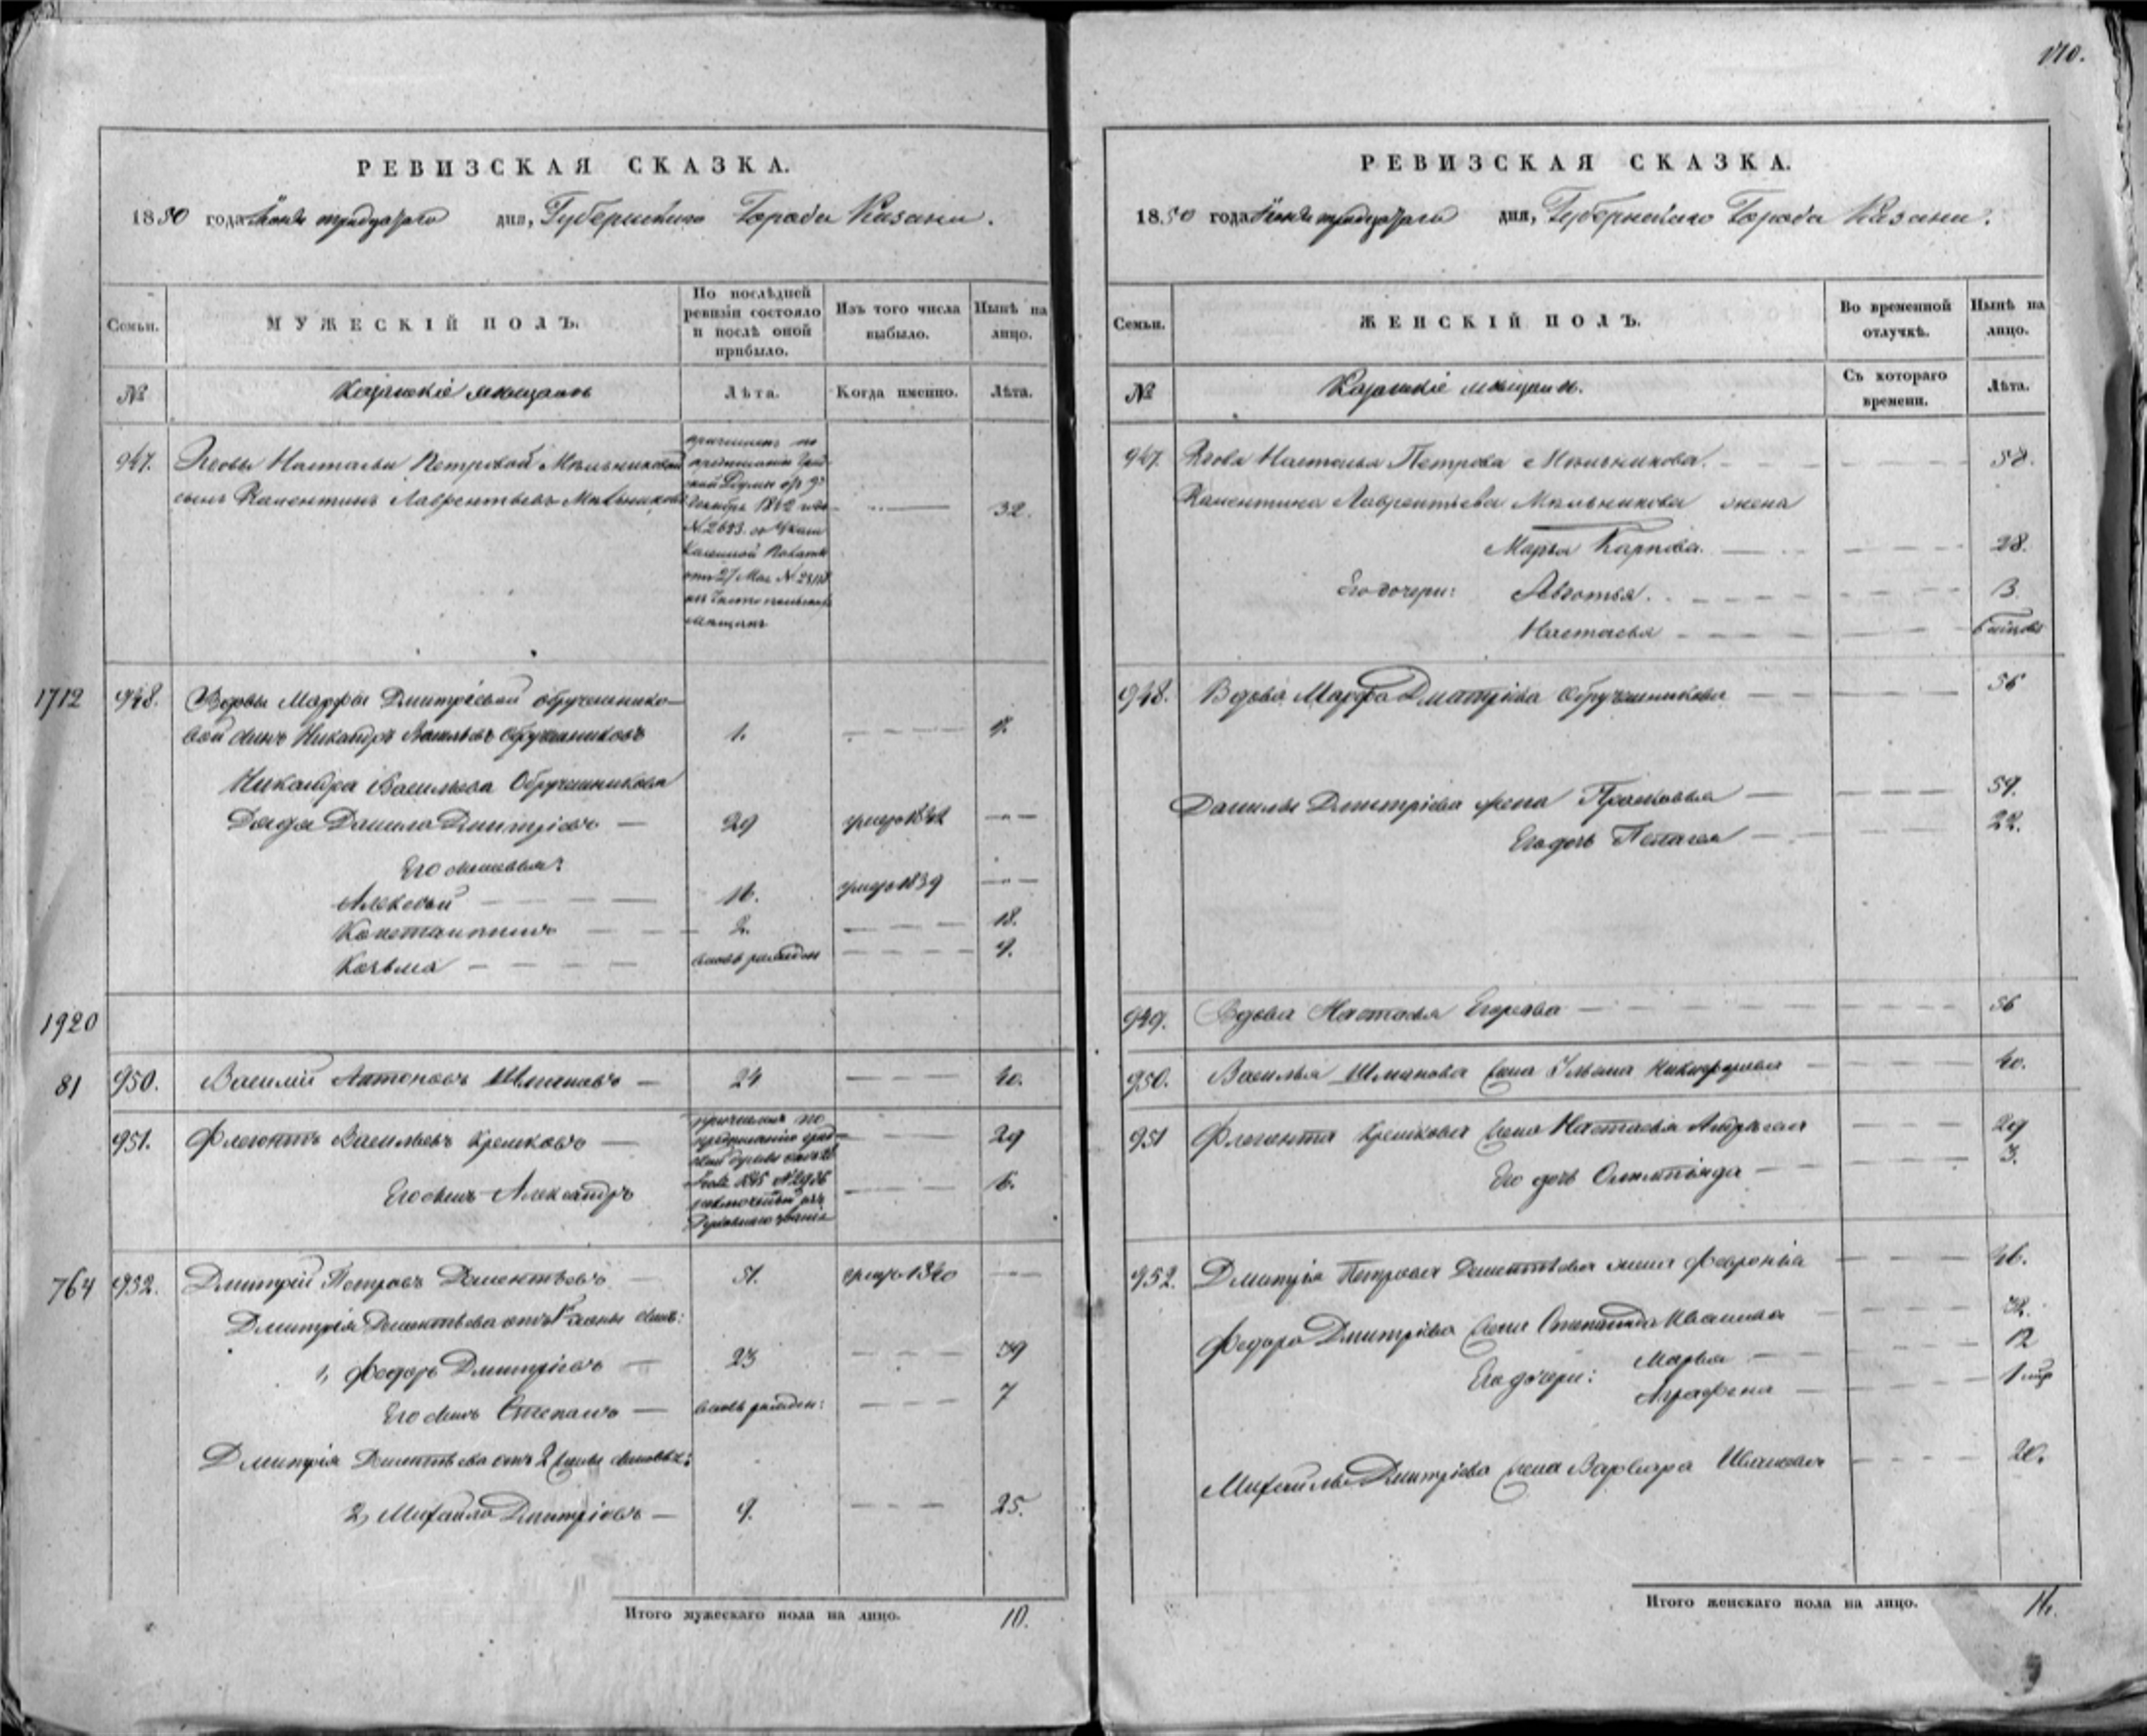 170.
РЕВИЗСКАЯ СКАЗКА.
1850 года Іюня тридцатаго дня, Губернскаго Города Казани.
Семьи.
МУЖЕСКІЙ ПОЛЪ.
По послѣдней ревизіи состояло и послѣ оной прибыло.
Изъ того числа выбыло.
Нынѣ на лицо.
№
Казанскіе мѣщане
Лѣта.
Когда именно.
Лѣта.
947. Вдовы Настасьи Петровой Мельниковой
сынъ Валентинъ Лаврентьевъ Мельниковъ 32.
причисленъ по
предписанію Град-
ской Думы
1842 года
Казенной Палаты
мѣщанъ
1712 948. Вдовы Марфы Дмитріевой Обручниково-
вой сынъ Никандръ Васильевъ Обручниковъ 1.
Никандра Васильева Обручникова
Дядя Данила Дмитріевъ — 29
Его сыновья:
Алексѣй 16. 1839
Константинъ 2. 18.
Козьма вновь рожден 9.
1920
81 950. Василій Антоновъ Шмановъ — 24 40.
951. Флегонтъ Васильевъ Крешковъ — 29
Его сынъ Александръ 6.
причисленъ по
предписанію град-
ской думы
1845 № 2936
духовнаго званія
764 952. Дмитрій Петровъ Дементьевъ 51. 1840
Дмитрія Дементьева отъ 1й жены сынъ:
1, Федоръ Дмитріевъ — 23
Его сынъ Степанъ — вновь рожден: 7
Дмитрія Дементьева отъ 2 жены сыновья:
2, Михайло Дмитріевъ — 9. 25.
Итого мужескаго пола на лицо. 10.
РЕВИЗСКАЯ СКАЗКА.
1850 года Іюня тридцатаго дня, Губернскаго Города Казани.
Семьи.
ЖЕНСКІЙ ПОЛЪ.
Во временной отлучкѣ.
Нынѣ на лицо.
№
Казанскіе мѣщане.
Съ котораго времени.
Лѣта.
947. Вдова Настасья Петрова Мельникова. 58.
Валентина Лаврентьева Мельникова жена
Марья Карпова. 28.
Его дочери: Авдотья. 3.
Настасья
948. Вдова Марфа Дмитріева Обручникова 56
Данилы Дмитріева жена Прасковья — 59.
Его дочь Пелагея — 22.
949. Вдова Настасья Егорова 56
950. Василья Шманова жена Ульяна Никифорова 40.
951 Флегонта Крешкова жена Настасья Андреева 29
Его дочь Олимпіада — 3.
952. Дмитрія Петрова Дементьева жена Февронья 46.
Федора Дмитріева жена Степанида Иванова
Его дочери: Марья 12
Аграфена
Михайлы Дмитріева жена Варвара Иванова 20.
Итого женскаго пола на лицо.